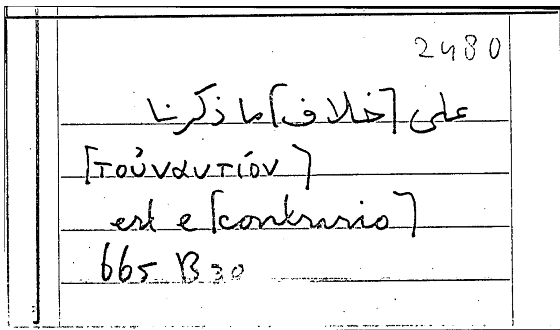 2480
على [خلاف] ما ذكرنا
[τοὐναντίον]
est e [contrario]
665 B 30